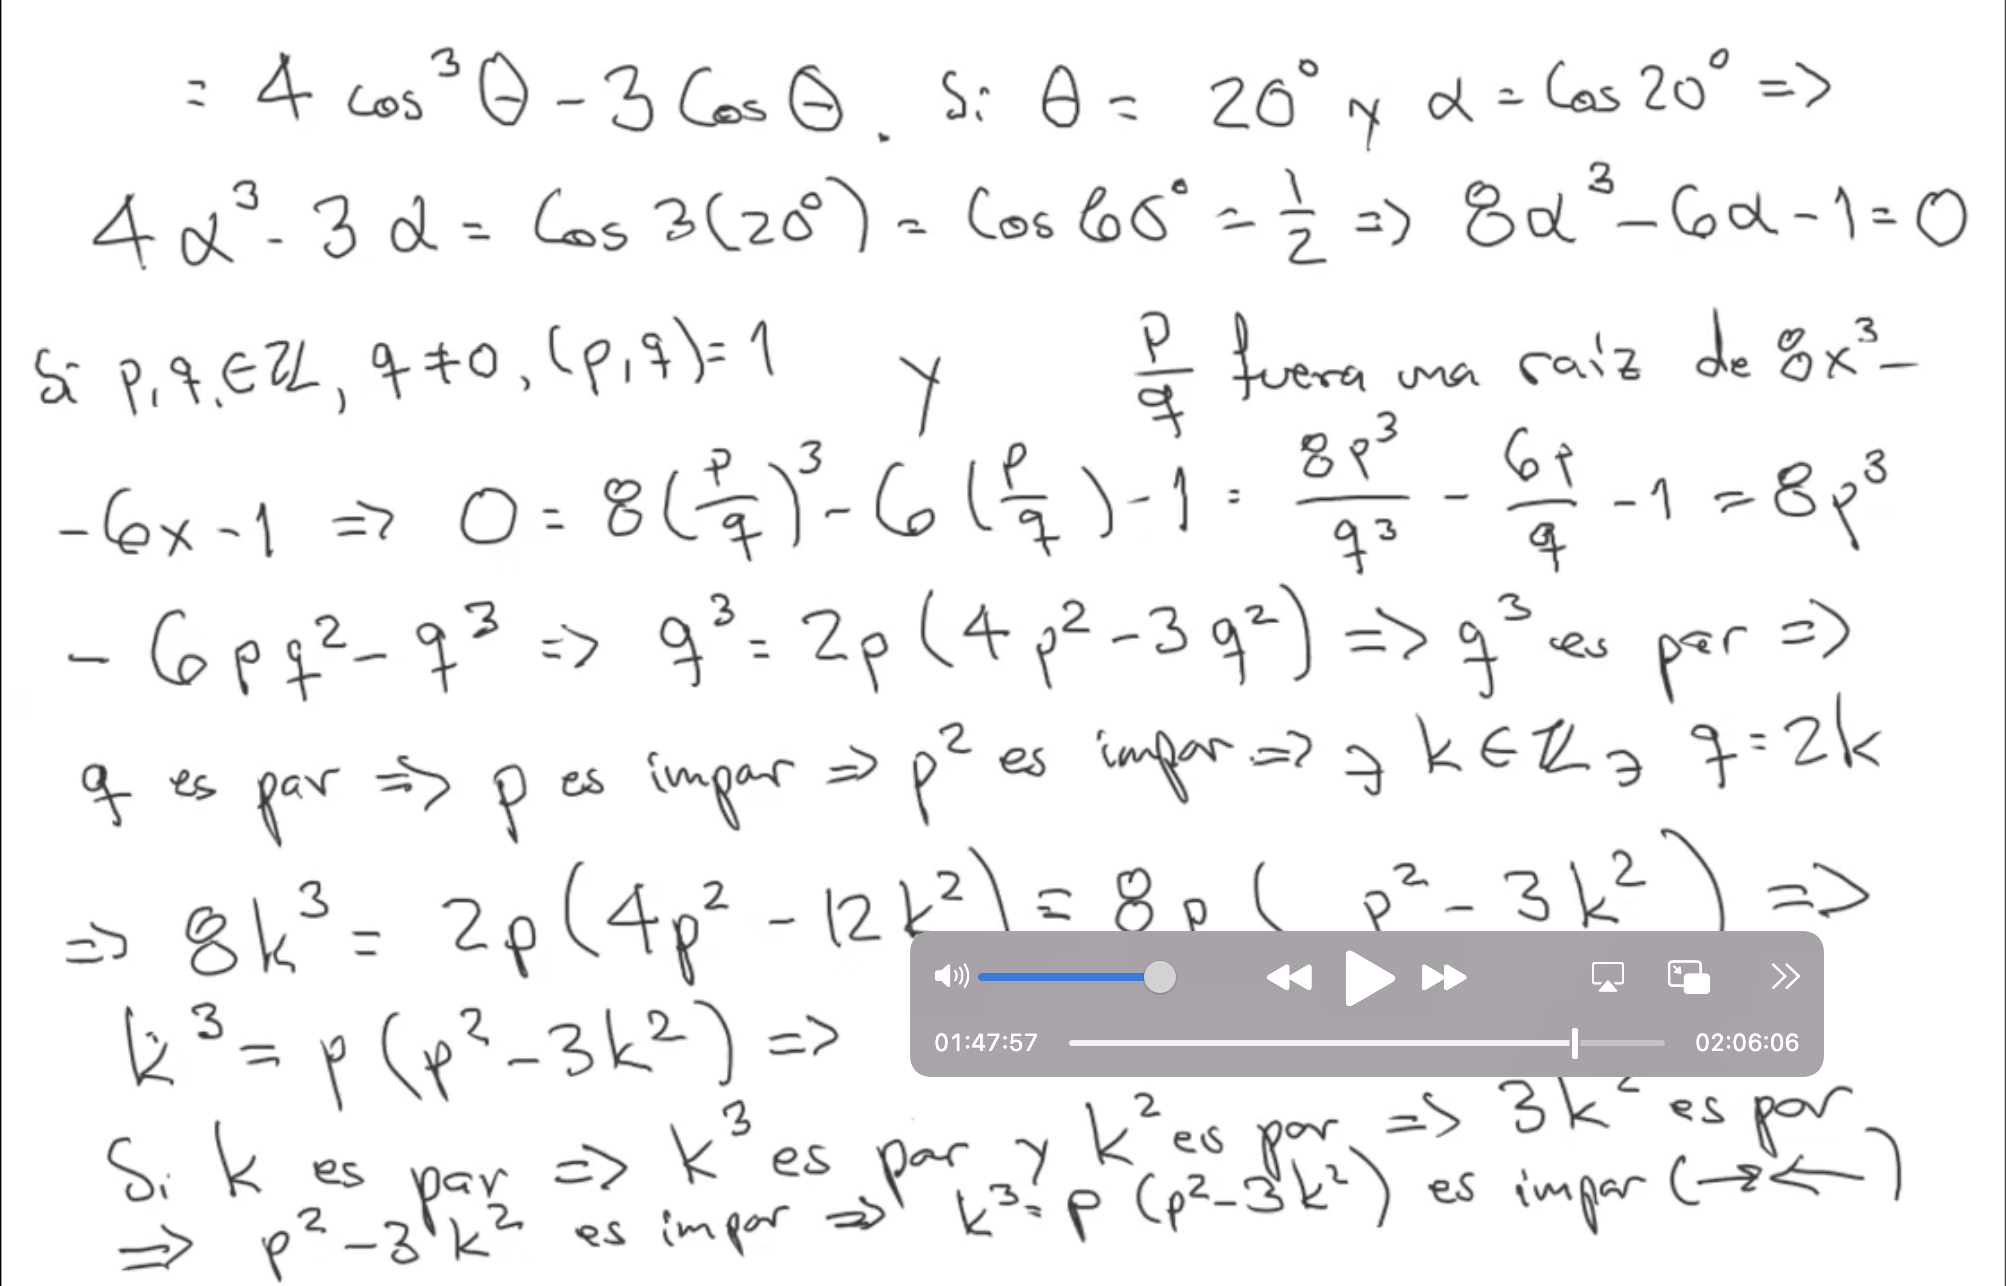 = 4 cos³θ - 3 Cos θ. Si θ = 20° y α = Cos 20° =>
4α³ - 3α = Cos 3(20°) = Cos 60° = 1/2 => 8α³ - 6α - 1 = 0
Si p, q, ∈ ℤ, q ≠ 0, (p, q) = 1 y p/q fuera una raíz de 8x³ -
- 6x - 1 => 0 = 8(p/q)³ - 6(p/q) - 1 = 8p³/q³ - 6p/q - 1 = 8p³
- 6pq² - q³ => q³ = 2p(4p² - 3q²) => q³ es par =>
q es par => p es impar => p² es impar => ∃ k ∈ ℤ ∋ q = 2k
=> 8k³ = 2p(4p² - 12k²) = 8p( p² - 3k²) =>
k³ = p(p² - 3k²) =>
01:47:57 02:06:06
Si k es par => k³ es par y k² es par => 3k² es par
=> p² - 3k² es impar => k³ = p(p² - 3k²) es impar (→←)